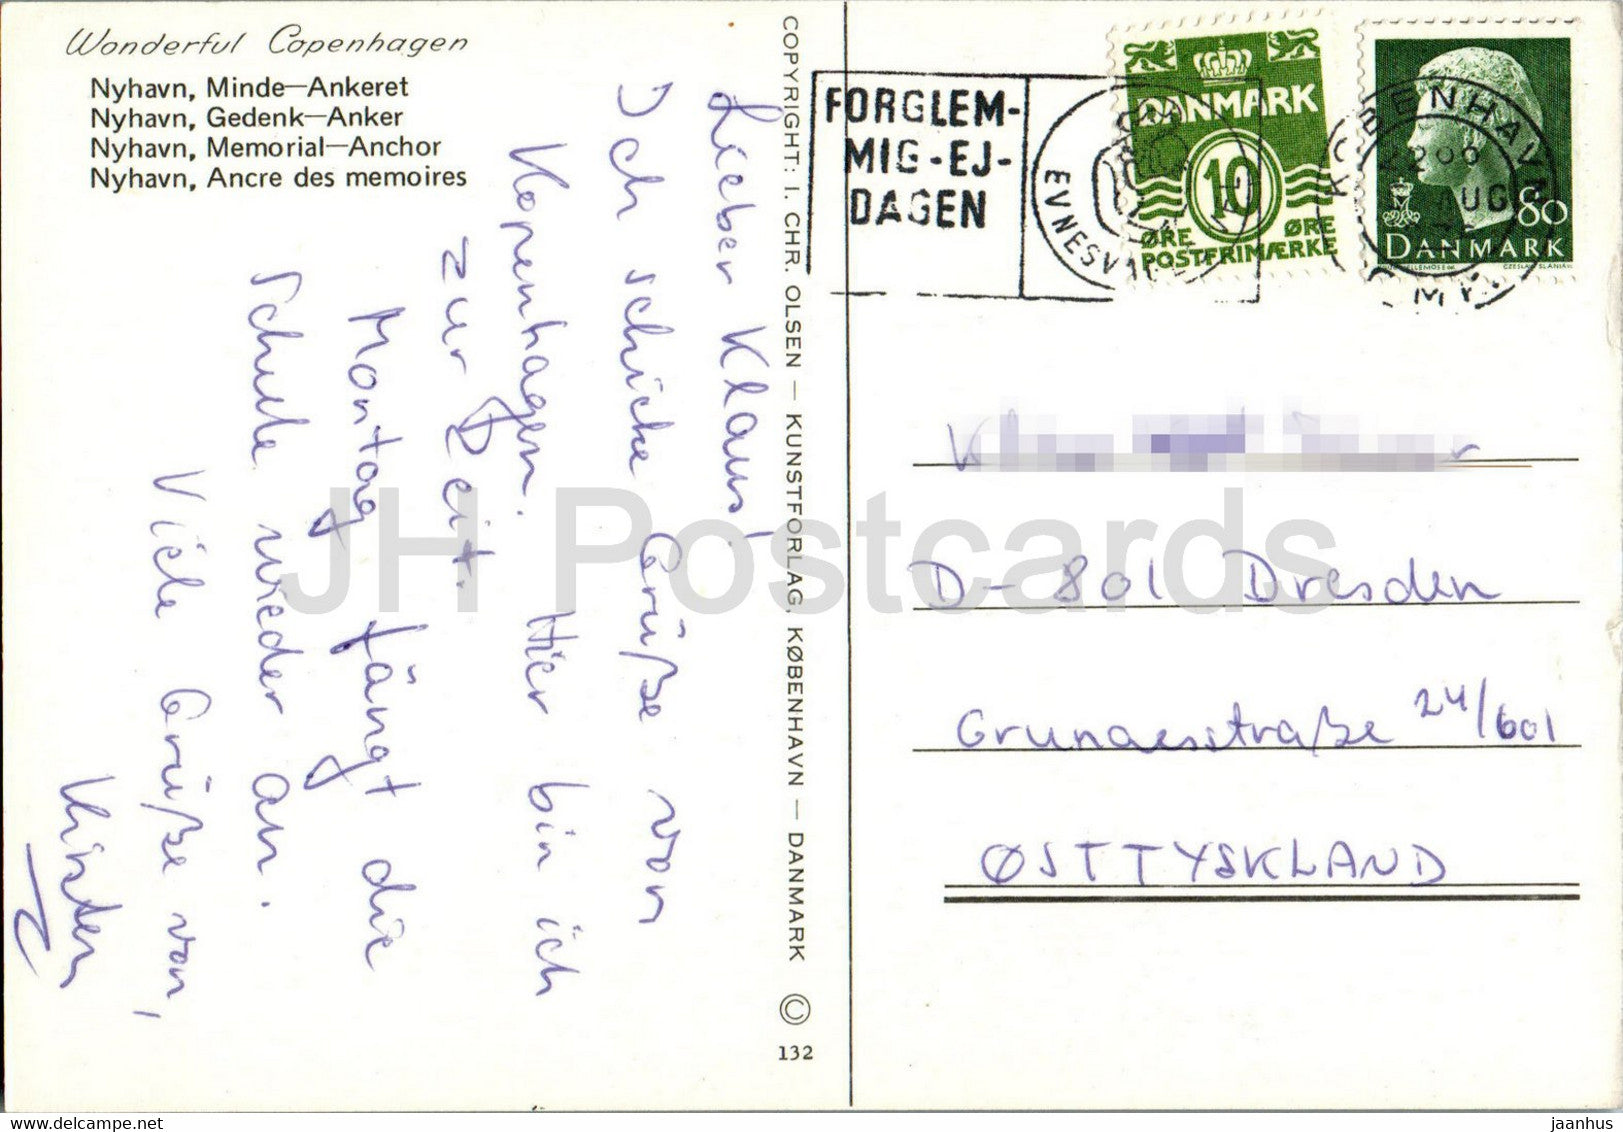 Wonderful Copenhagen
Nyhavn, Minde—Ankeret
Nyhavn, Gedenk—Anker
Nyhavn, Memorial—Anchor
Nyhavn, Ancre des memoires
Lieber Klaus!
Ich schicke Grüße von
Kopenhagen. Hier bin ich
zur Zeit.
Montag fängt die
Schule wieder an.
Viele Grüße von,
Kirsten
COPYRIGHT: I. CHR. OLSEN — KUNSTFORLAG, KØBENHAVN — DANMARK ©
132
FORGLEM-
MIG-EJ-
DAGEN
DANMARK
10
ØRE ØRE
POSTFRIMÆRKE
KØBENHAVN
AUG
80
DANMARK
CZESLAW SLANIA
D-801 Dresden
Grunaesstraße 24/601
ØSTTYSKLAND
JH Postcards
www.delcampe.net
jaanhus